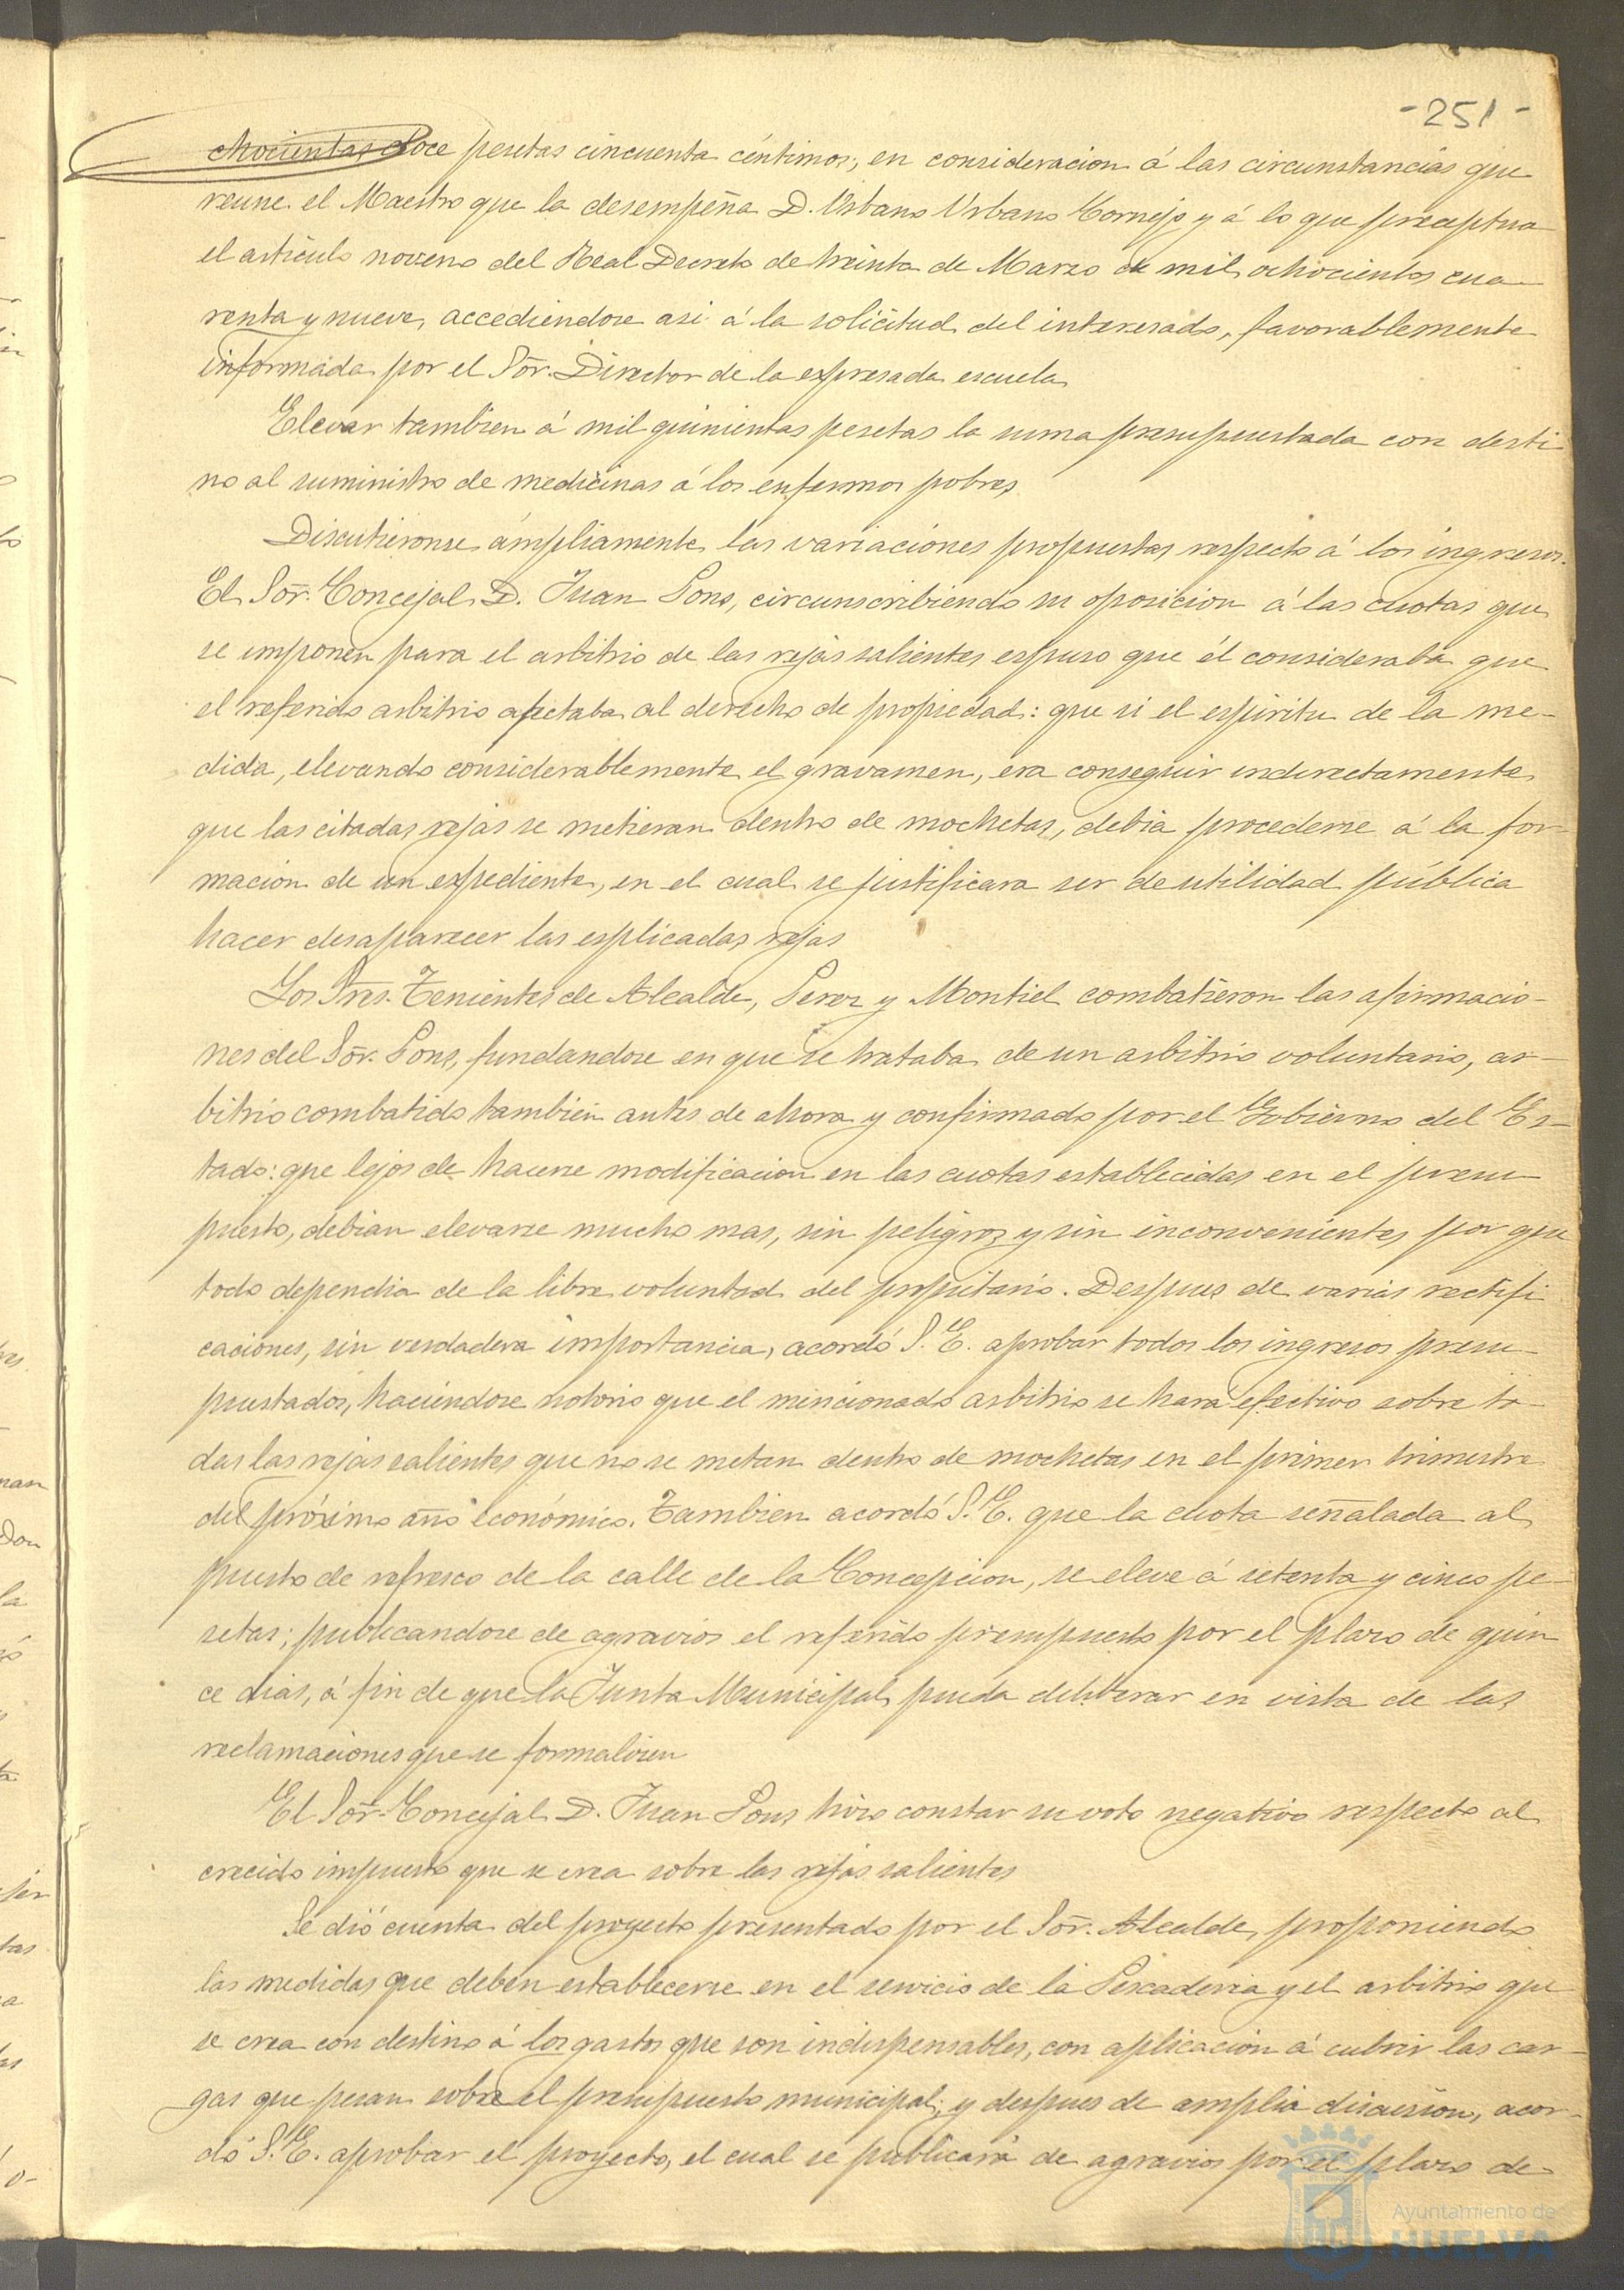 -251-
ochocientas doce pesetas cincuenta céntimos, en consideracion á las circunstancias que
reune el Maestro que la desempeña D. Urbano Urbano Cornejo y á lo que preceptua
el artículo noveno del Real Decreto de treinta de Marzo de mil ochocientos cua-
renta y nueve, accediendose asi á la solicitud del interesado, favorablemente
informada por el Sor. Director de la expresada escuela
Elevar tambien á mil quinientas pesetas la suma presupuestada con desti
no al suministro de medicinas á los enfermos pobres
Discutieronse ámpliamente las variaciones propuestas respecto á los ingresos.
El Sor. Concejal D. Juan Pons, circunscribiendo su oposicion á las cuotas que
se imponen para el arbitrio de las rejas salientes espuso que él consideraba que
el referido arbitrio afectaba al derecho de propiedad: que si el espíritu de la me-
dida, elevando considerablemente el gravamen, era conseguir indirectamente
que las citadas rejas se metieran dentro de mochetas, debia procederse á la for-
macion de un expediente, en el cual se justificara ser de utilidad pública
hacer desaparecer las esplicadas rejas
Los Sres. Tenientes de Alcalde, Perez y Montiel combatieron las afirmacio-
nes del Sor. Pons, fundandose en que se trataba de un arbitrio voluntario, ar-
bitrio combatido tambien antes de ahora y confirmado por el Gobierno del Es-
tado: que lejos de hacerse modificacion en las cuotas establecidas en el presu-
puesto, debian elevarse mucho mas, sin peligros y sin inconvenientes por que
todo dependia de la libre voluntad del propietario. Despues de varias rectifi
caciones, sin verdadera importancia, acordó S. E. aprobar todos los ingresos presu-
puestados, haciendose notorio que el mencionado arbitrio se hará efectivo sobre to-
das las rejas salientes que no se metan dentro de mochetas en el primer trimestre
del próximo año económico. Tambien acordó S. E. que la cuota señalada al
puesto de refresco de la calle de la Concepcion, se eleve á setenta y cinco pe-
setas; publicandose de agravios el referido presupuesto por el plazo de quin
ce dias, á fin de que la Junta Municipal pueda deliberar en vista de las
reclamaciones que se formalicen
El Sor. Concejal D. Juan Pons hizo constar su voto negativo respecto al
crecido impuesto que se crea sobre las rejas salientes
Se dió cuenta del proyecto presentado por el Sor. Alcalde, proponiendo
las medidas que deben establecerse en el servicio de la Pescaderia y el arbitrio que
se crea con destino á los gastos que son indispensables, con aplicacion á cubrir las car-
gas que pesan sobre el presupuesto municipal; y despues de amplia discusion, acor-
dó S. E. aprobar el proyecto, el cual se publicará de agravios por el plazo de
Ayuntamiento de
HUELVA